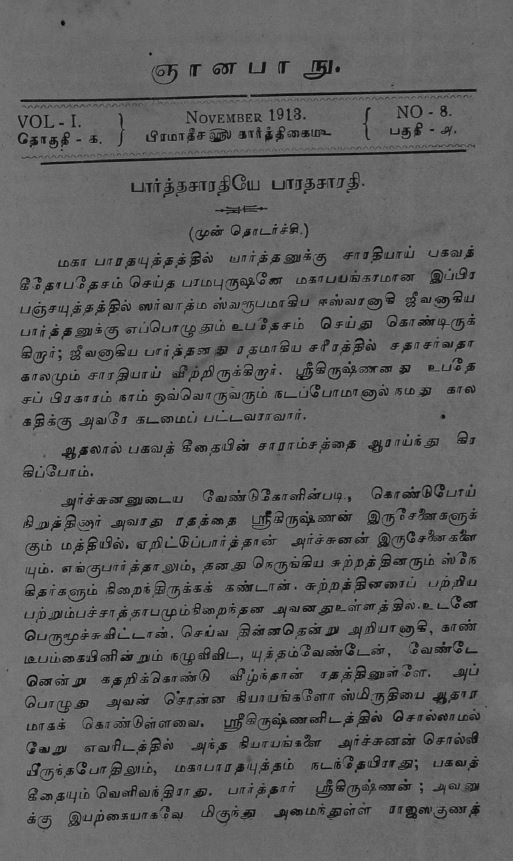 ஞானபாநு.
VOL - I.
தொகுதி - க.
NOVEMBER 1913.
பிரமாதீச ௵ கார்த்திகை௴
NO - 8.
பகுதி - அ.
பார்த்தசாரதியே பாரதசாரதி.
(முன் தொடர்ச்சி.)
மகா பாரதயுத்தத்தில் பார்த்தனுக்கு சாரதியாய் பகவத்
கீதோபதேசம் செய்த பரமபுருஷனே மகாபயங்கரமான இப்பிர
பஞ்சயுத்தத்தில் ஸர்வாத்ம ஸ்வரூபமாகிய ஈஸ்வரனாகி ஜீவனாகிய
பார்த்தனுக்கு எப்பொழுதும் உபதேசம் செய்து கொண்டிருக்
கிறார்; ஜீவனாகிய பார்த்தனது ரதமாகிய சரீரத்தில் சதாசர்வதா
காலமும் சாரதியாய் வீற்றிருக்கிறார். ஸ்ரீகிருஷ்ணனது உபதே
சப் பிரகாரம் நாம் ஒவ்வொருவரும் நடப்போமானால் நமது கால
கதிக்கு அவரே கடமைப் பட்டவராவார்.
ஆதலால் பகவத் கீதையின் சாராம்சத்தை ஆராய்ந்து கிர
கிப்போம்.
அர்ச்சுனனுடைய வேண்டுகோளின்படி, கொண்டுபோய்
நிறுத்தினார் அவரது ரதத்தை ஸ்ரீகிருஷ்ணன் இருசேனைகளுக்
கும் மத்தியில். ஏறிட்டுப்பார்த்தான் அர்ச்சுனன் இருசேனைகளை
யும். எங்குபார்த்தாலும், தனது நெருங்கிய சுற்றத்தினரும் ஸ்நே
கிதர்களும் நிறைந்திருக்கக் கண்டான். சுற்றத்தினரைப் பற்றிய
பற்றும்பச்சாத்தாபமும்நிறைந்தன அவனதுஉள்ளத்தில். உடனே
பெருமூச்சுவிட்டான். செய்வ தின்னதென்று அறியானாகி, காண்
டீபம்கையினின்றும் நழுவிவிட, யுத்தம்வேண்டேன், வேண்டே
னென்று கதறிக்கொண்டு வீழ்ந்தான் ரதத்தினுள்ளே. அப்
பொழுது அவன் சொன்ன நியாயங்களோ ஸ்மிருதியை ஆதார
மாகக் கொண்டுள்ளவை. ஸ்ரீகிருஷ்ணனிடத்தில் சொல்லாமல்
வேறு எவரிடத்தில் அந்த நியாயங்களை அர்ச்சுனன் சொல்லி
யிருந்தபோதிலும், மகாபாரதயுத்தம் நடந்தேயிராது; பகவத்
கீதையும் வெளிவந்திராது. பார்த்தார் ஸ்ரீகிருஷ்ணன்; அவனு
க்கு இயற்கையாகவே மிகுந்து அமைந்துள்ள ராஜஸகுணத்